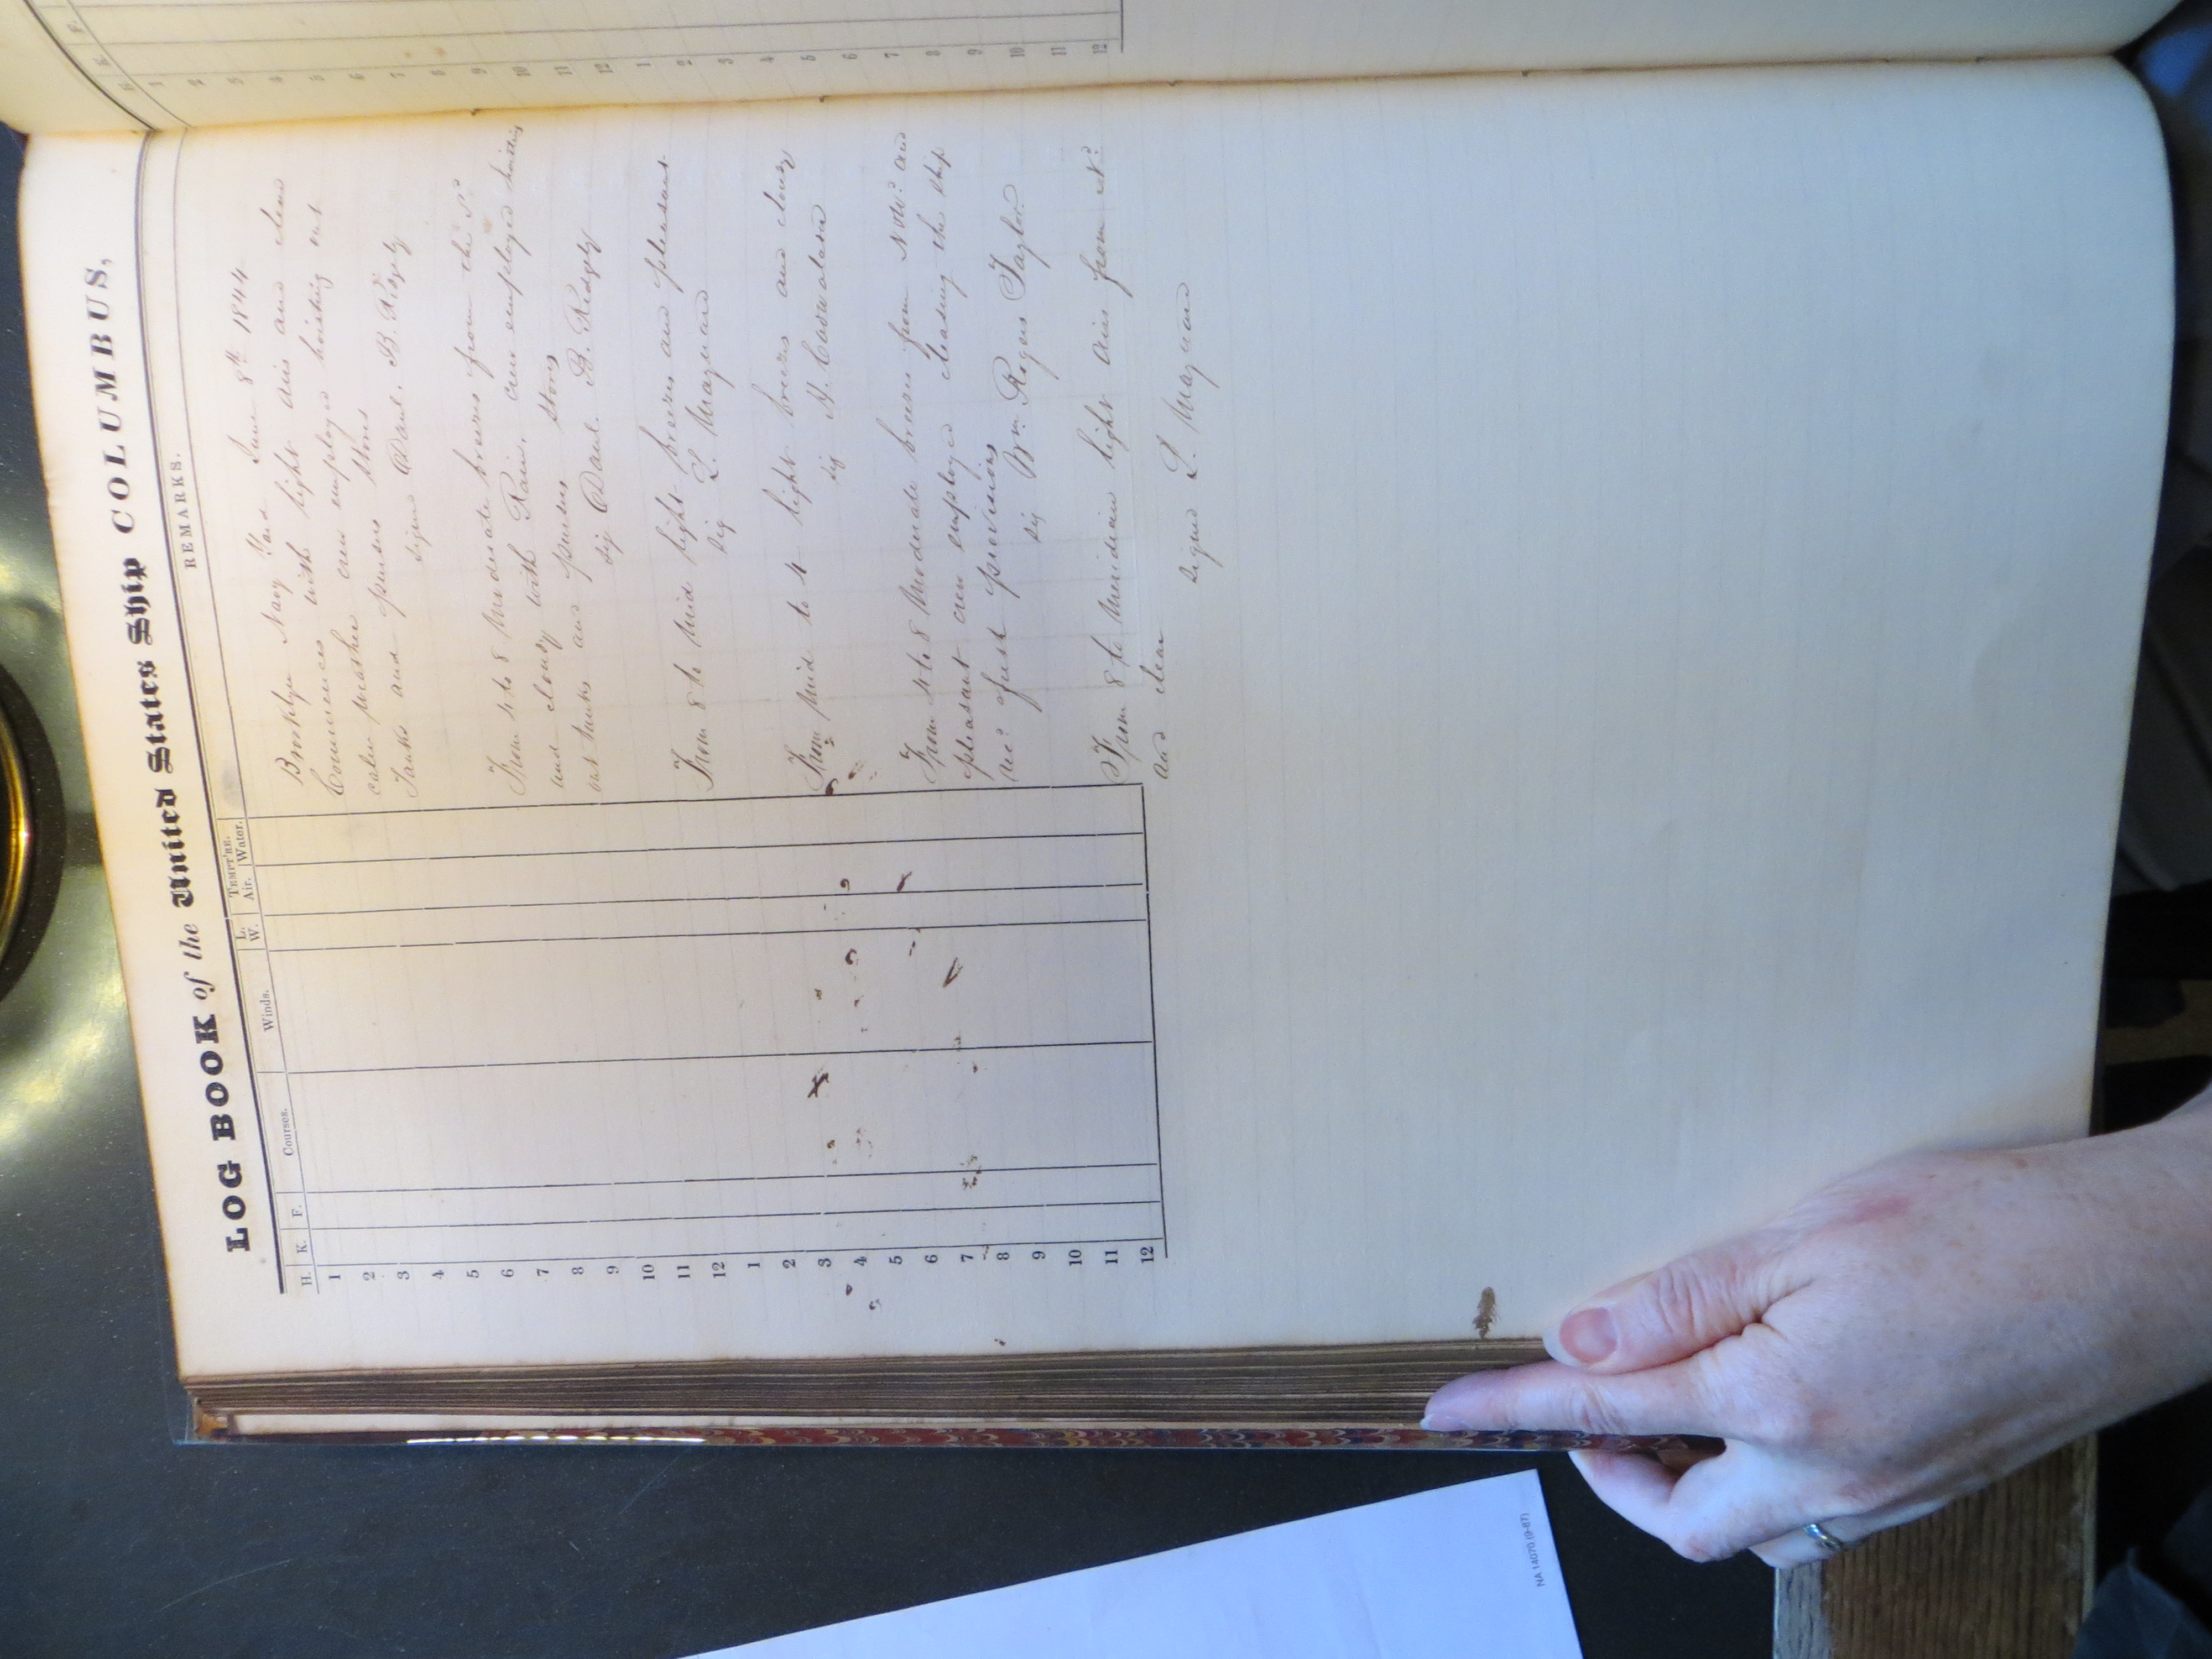 LOG BOOK of the United States Ship COLUMBUS,
H. K. F. Courses. Winds. L. W. TEMPT'RE. Air. Water. REMARKS.
1
2
3
4
5
6
7
8
9
10
11
12
1
2
3
4
5
6
7
8
9
10
11
12
Brooklyn Navy Yard June 8th 1844
Commences with light airs and clear
calm weather crew employed hoisting out
Tanks and pursers stores
signed Danl. B. Ridgely
From 4 to 8 Moderate breezes from the Sd
and cloudy with Rain. crew employed hoisting
out tanks and pursers stores
sig Danl. B. Ridgely
From 8 to Mid light breezes and pleasant
sig L. Maynard
From Mid to 4 light breezes and cloudy
sig
From 4 to 8 Moderate breezes from NWd and
pleasant crew employed cleaning the ship
recd fresh provisions
sig Wm. Rogers Taylor
From 8 to Meridian light airs from Nd
and clear
signed L. Maynard
H. K. F.
1
2
3
4
5
6
7
8
9
10
11
12
1
2
3
4
5
6
7
8
9
10
11
12
NA 14070 (9-87)